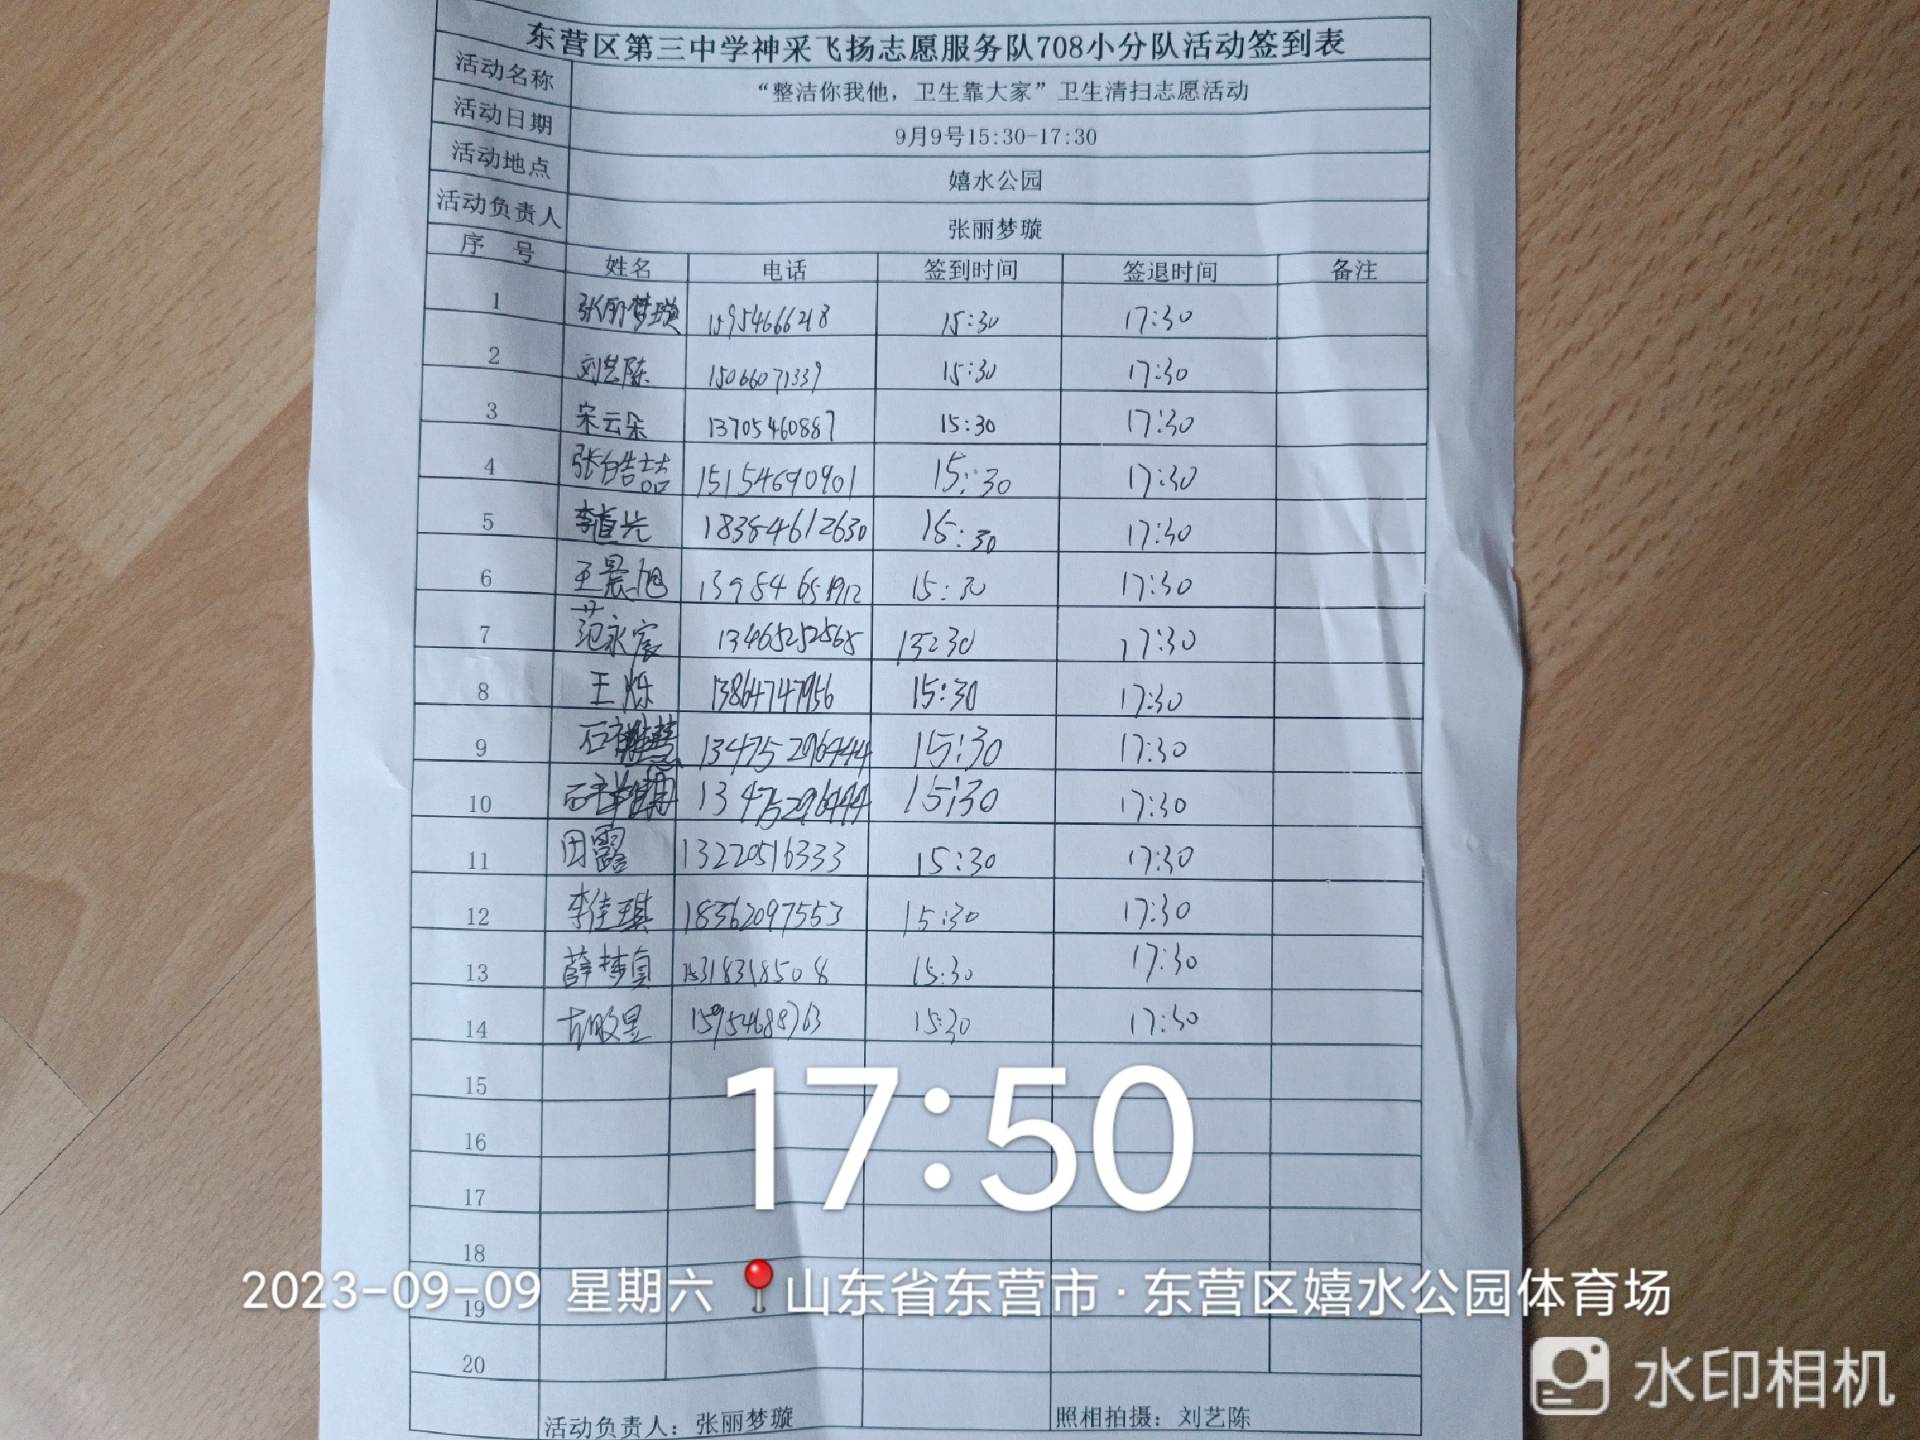 东营区第三中学神采飞扬志愿服务队708小分队活动签到表
活动名称 “整洁你我他，卫生靠大家”卫生清扫志愿活动
活动日期 9月9号15:30-17:30
活动地点 嬉水公园
活动负责人 张丽梦璇
序 号 姓名 电话 签到时间 签退时间 备注
1 张丽梦璇 15954666218 15:30 17:30
2 刘艺陈 15066071339 15:30 17:30
3 宋云朵 13705460887 15:30 17:30
4 张皓喆 15154690901 15:30 17:30
5 李直光 18354612630 15:30 17:30
6 王晨旭 13954651912 15:30 17:30
7 范永宸 13465252565 15:30 17:30
8 王烁 13864747956 15:30 17:30
9 13475296444 15:30 17:30
10 13475296444 15:30 17:30
11 田露 13220516333 15:30 17:30
12 李佳琪 18362097553 15:30 17:30
13 薛梦真 15318318508 15:30 17:30
14 15954688763 15:30 17:30
15
17:50
16
17
18
2023-09-09 星期六 山东省东营市·东营区嬉水公园体育场
19
20
水印相机
活动负责人：张丽梦璇 照相拍摄：刘艺陈